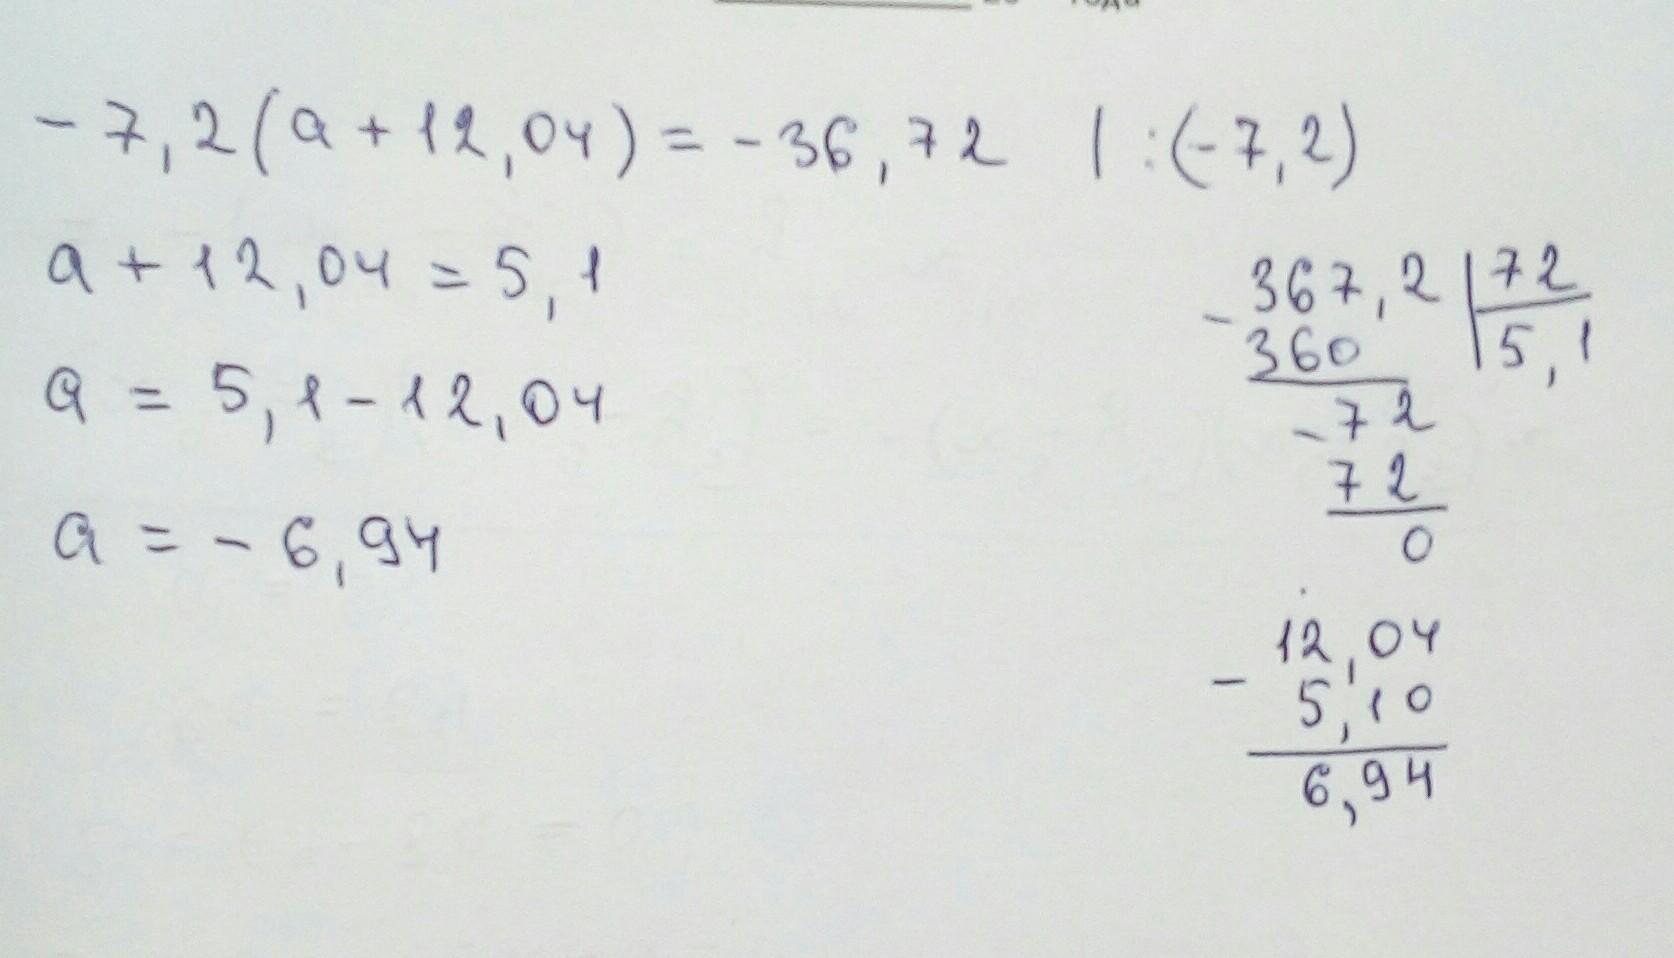 года
- 7,2(a + 12,04) = - 36,72 | :(- 7,2)
a + 12,04 = 5,1
a = 5,1 - 12,04
a = - 6,94
- 367,2 | 72
360 | 5,1
- 72
72
0
12,04
-
5,10
6,94